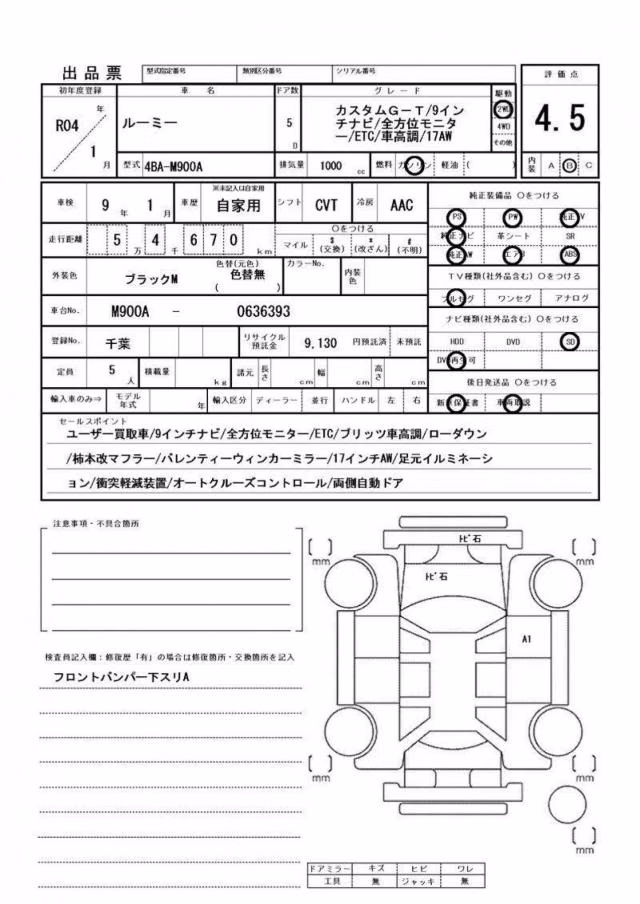 出品票
型式指定番号 類別区分番号 シリアル番号
評価点
4.5
初年度登録 車名 ドア数 グレード 駆動
R04 年 1 月
ルーミー
5 D
カスタムG-T/9イン
チナビ/全方位モニタ
ー/ETC/車高調/17AW
2WD
4WD
その他
型式 4BA-M900A 排気量 1000 cc 燃料 ガソリン 軽油 ( )
内装 A B C
車検 9年 1月 車歴 ※未記入は自家用 自家用 シフト CVT 冷房 AAC
走行距離 5万 4千 670 km
○をつける
マイル $(交換) *(改ざん) #(不明)
外装色 ブラックM 色替(元色) 色替無 ( ) カラーNo. 内装色
車台No. M900A - 0636393
登録No. 千葉 リサイクル預託金 9,130 円預託済 未預託
定員 5人 積載量 kg 諸元 長さ cm 幅 cm 高さ cm
輸入車のみ⇒ モデル年式 年 輸入区分 ディーラー 並行 ハンドル 左 右
純正装備品 ○をつける
PS PW 純正TV
純正ナビ 革シート SR
純正AW エアB ABS
TV種類(社外品含む) ○をつける
フルセグ ワンセグ アナログ
ナビ種類(社外品含む) ○をつける
HDD DVD SD
DVD再生可
後日発送品 ○をつける
新車保証書 車両取説
セールスポイント
ユーザー買取車/9インチナビ/全方位モニター/ETC/ブリッツ車高調/ローダウン
/柿本改マフラー/バレンティーウィンカーミラー/17インチAW/足元イルミネーシ
ョン/衝突軽減装置/オートクルーズコントロール/両側自動ドア
注意事項・不具合箇所
検査員記入欄:修復歴「有」の場合は修復箇所・交換箇所を記入
フロントバンパー下スリA
トビ石
トビ石
A1
[ ] mm
[ ] mm
[ ] mm
[ ] mm
[ ] mm
ドアミラー キズ ヒビ ワレ
工具 無 ジャッキ 無